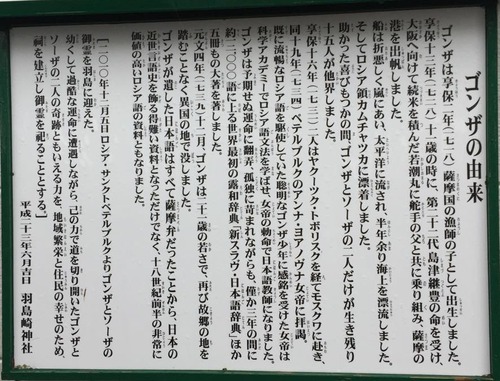 ゴンザの由来
ゴンザは享保三年(一七一八)薩摩国の漁師の子として出生しました。
享保十三年(七二八)十歳の時に、第二十二代島津継豊の命を受け、
大阪へ向けて続米を積んだ若潮丸に舵手の父と共に乗り組み、薩摩の
港を出帆しました。
船は折悪しく嵐にあい、太平洋に流され、半年余り海上を漂流しました。
そしてロシア領カムチャツカに漂着しました。
助かった喜びもつかの間、ゴンザとソーザの二人だけが生き残り
十五人が他界しました。
享保十六年(一七三一)二人はヤクーツク・トボリスクを経てモスクワに赴き、
同十九年(一七三四)ペテルブルクのアンナ・ヨアノヴナ女帝に拝謁。
既に流暢なロシア語を駆使していた聡明なゴンザ少年に感銘を受けた女帝は
科学アカデミーでロシア語文法を学ばせ、女帝の勅命で日本語教師になりました。
ゴンザは予期せぬ運命に翻弄、孤独に苛まれながらも、僅か三年の間に
約一二〇〇〇語に上る世界最初の露和辞典、「新スラヴ・日本語辞典」ほか
五冊もの大著を著しました。
元文四年(一七三九)十二月、ゴンザは二十一歳の若さで、再び故郷の地を
踏むことなく異国の地で没しました。
ゴンザが遺した日本語はすべて薩摩弁だったことから、日本の
近世言語史を飾る得難い資料となっただけでなく、十八世紀前半の非常に
価値の高いロシア語の資料ともなりました。
[二〇一〇年十二月五日ロシア・サンクトペテルブルクよりゴンザとソーザの
御霊を羽島に迎えた。
幼くして過酷な運命に遭遇しながら、己の力で道を切り開いたゴンザと
ソーザの二人の奇跡ともいえる力を、地域繁栄と住民の幸せのため、
祠を建立し御霊を祀ることとする。]
平成二十三年六月吉日 羽島崎神社